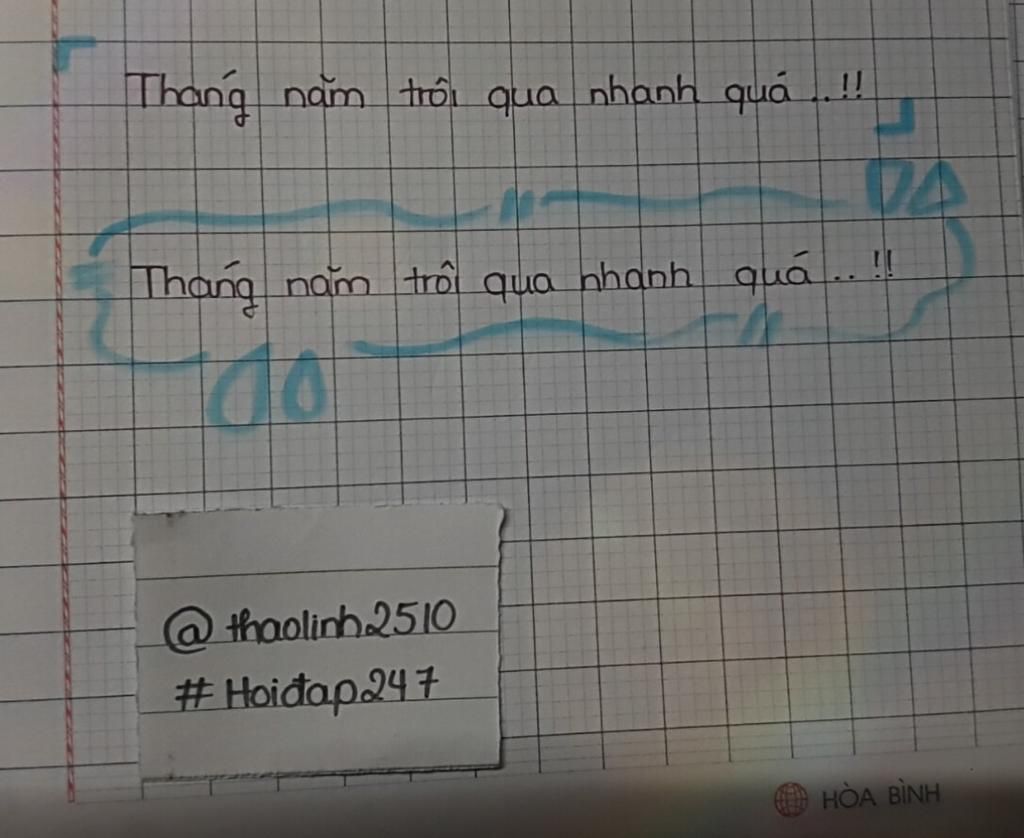 Tháng năm trôi qua nhanh quá..!!
Tháng năm trôi qua nhanh quá..!!
@thaolinh2510
#Hoidap247
HÒA BÌNH